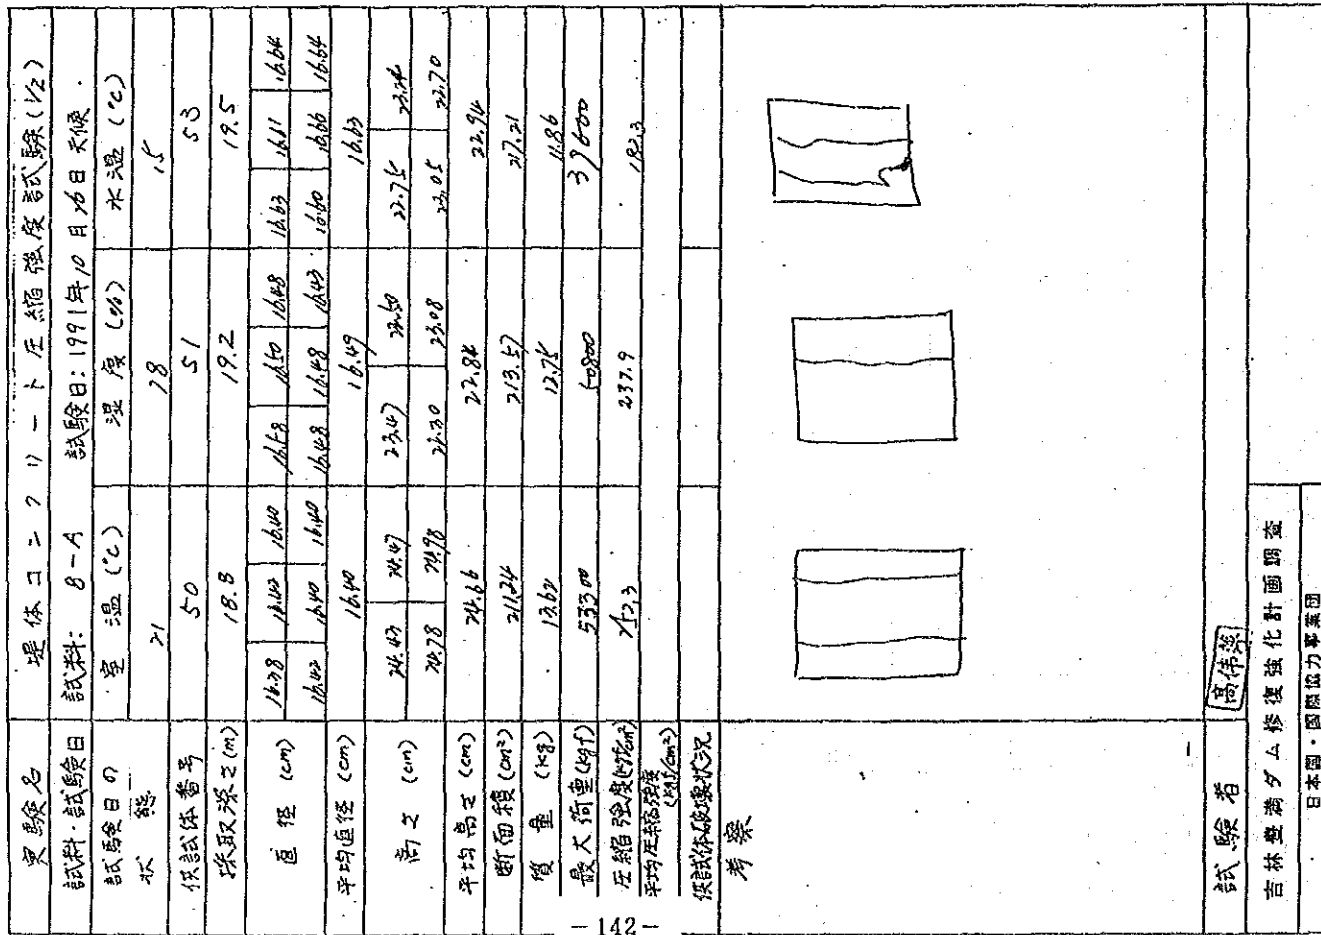 実験名 堤体コンクリート圧縮強度試験(1/2)
試料・試験日 試料: 8-A 試験日:1991年10月16日 天候
試験日の状態 室温(℃) 湿度(%) 水温(℃)
21 78 15
供試体番号 50 51 53
採取深さ(m) 18.8 19.2 19.5
直径(cm) 16.38 16.42 16.40 16.58 16.50 16.48 16.63 16.61 16.64
16.42 16.40 16.40 16.48 16.48 16.43 16.60 16.66 16.64
平均直径(cm) 16.40 16.49 16.63
高さ(cm) 24.43 24.47 23.47 22.50 22.75 23.24
24.78 24.98 22.30 23.08 23.05 22.70
平均高さ(cm) 24.66 22.84 22.94
断面積(cm²) 211.24 213.57 217.21
質量(kg) 13.62 12.75 11.86
最大荷重(kgf) 53300 50800 39600
圧縮強度(kgf/cm²) 252.3 237.9 182.3
平均圧縮強度(kgf/cm²)
供試体破壊状況
考察
試験者 高伟
吉林豊満ダム修復強化計画調査
日本国・国際協力事業団
-142-